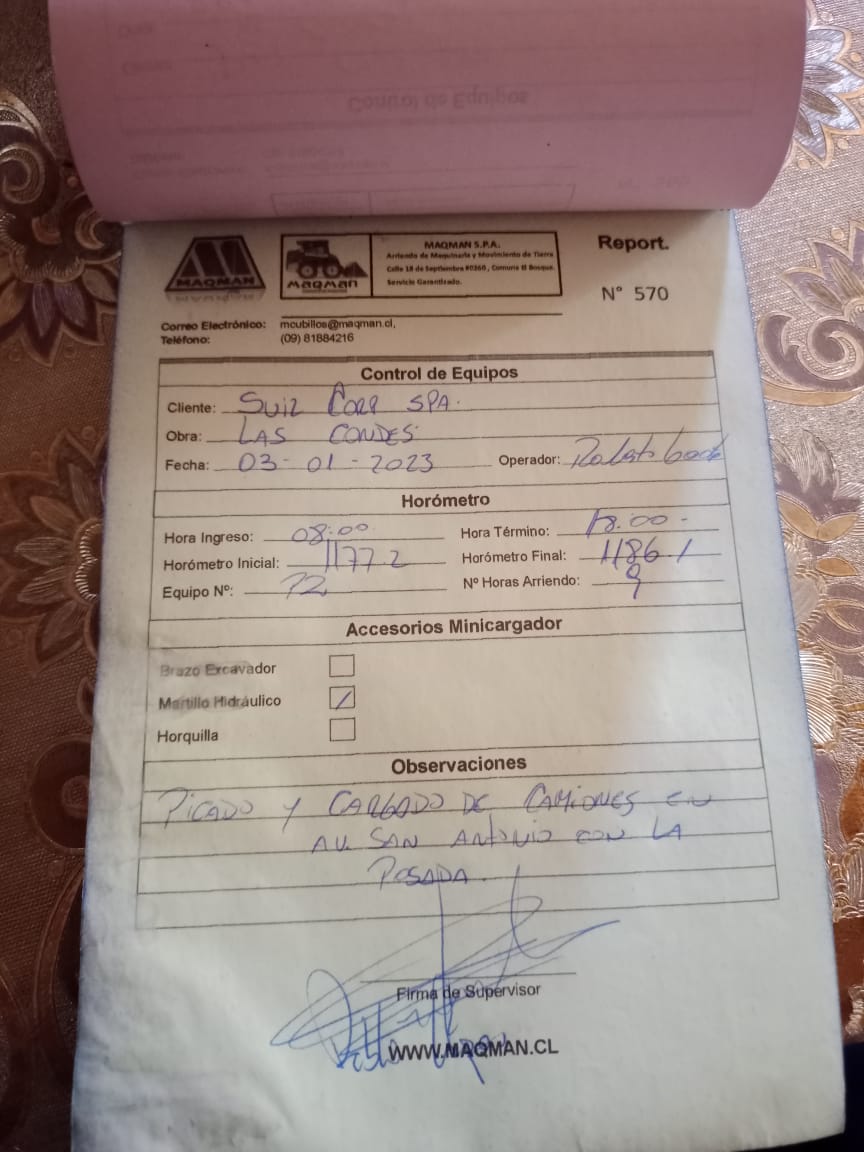 Control de Equipos
MAQMAN
maqman
MAQMAN S.P.A.
Arriendo de Maquinaria y Movimiento de Tierra
Calle 18 de Septiembre #0260, Comuna El Bosque.
Servicio Garantizado.
Report.
N° 570
Correo Electrónico: mcubillos@maqman.cl,
Teléfono: (09) 81884216
Control de Equipos
Cliente: Suiz Corp SPA.
Obra: LAS CONDES
Fecha: 03-01-2023 Operador:
Horómetro
Hora Ingreso: 08:00 Hora Término: 18:00-
Horómetro Inicial: 1177.2 Horómetro Final: 1186.1
Equipo Nº: 72 Nº Horas Arriendo: 9
Accesorios Minicargador
Brazo Excavador
Martillo Hidráulico /
Horquilla
Observaciones
PICADO Y CARGADO DE CAMIONES EN
AV. SAN ANTONIO CON LA
POSADA.
Firma de Supervisor
WWW.MAQMAN.CL